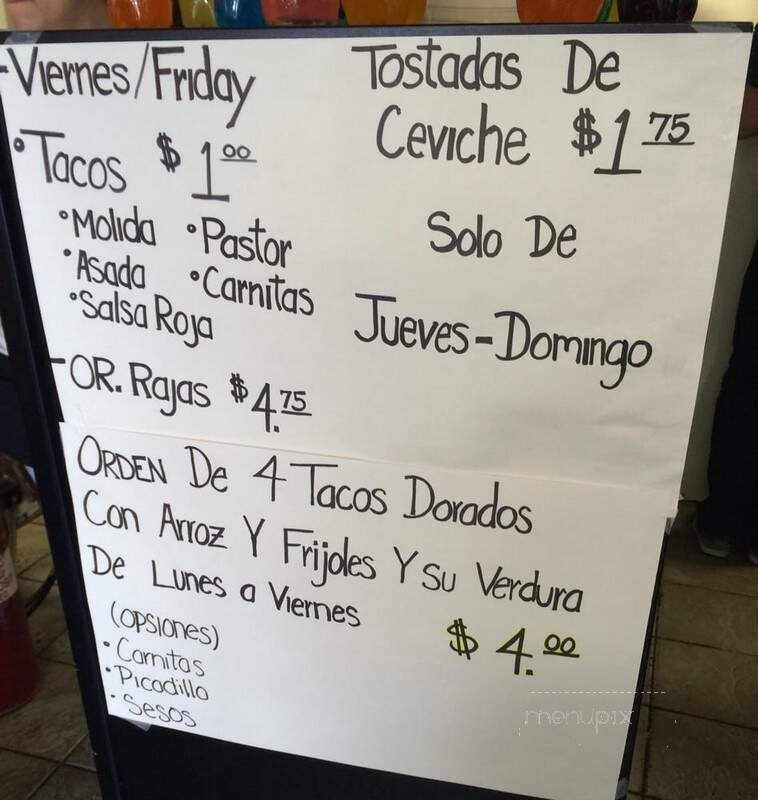 -Viernes/Friday
• Tacos $1.00
• Molida • Pastor
• Asada • Carnitas
• Salsa Roja
- OR. Rajas $4.75
Tostadas De
Ceviche $1.75
Solo De
Jueves-Domingo
ORDEN De 4 Tacos Dorados
Con Arroz Y Frijoles Y su Verdura
De Lunes a Viernes
$4.00
(opsiones)
• Carnitas
• Picadillo
• Sesos
menupix